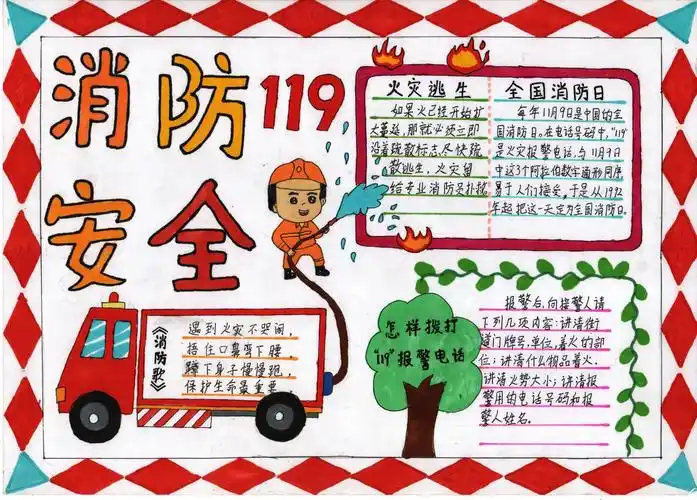 消防119
安全
火灾逃生
如果火已经开始扩
大蔓延,那就必须立即
沿着疏散标志尽快疏
散逃生,火灾留
给专业消防员扑救
全国消防日
每年11月9日是中国的全
国消防日。在电话号码中,"119"
是火灾报警电话,与11月9日
中这3个阿拉伯数字面形同序
易于人们接受,于是从1992
年起把这一天定为全国消防日。
《消防歌》
遇到火灾不哭闹,
捂住口鼻弯下腰,
蹲下身子慢慢跑,
保护生命最重要
怎样拨打
"119"报警电话
报警后,向接警人请
下列几项内容:讲清街
道门牌号,单位,着火的部
位;讲清什么物品着火.
讲清火势大小;讲清报
警用的电话号码和报
警人姓名。